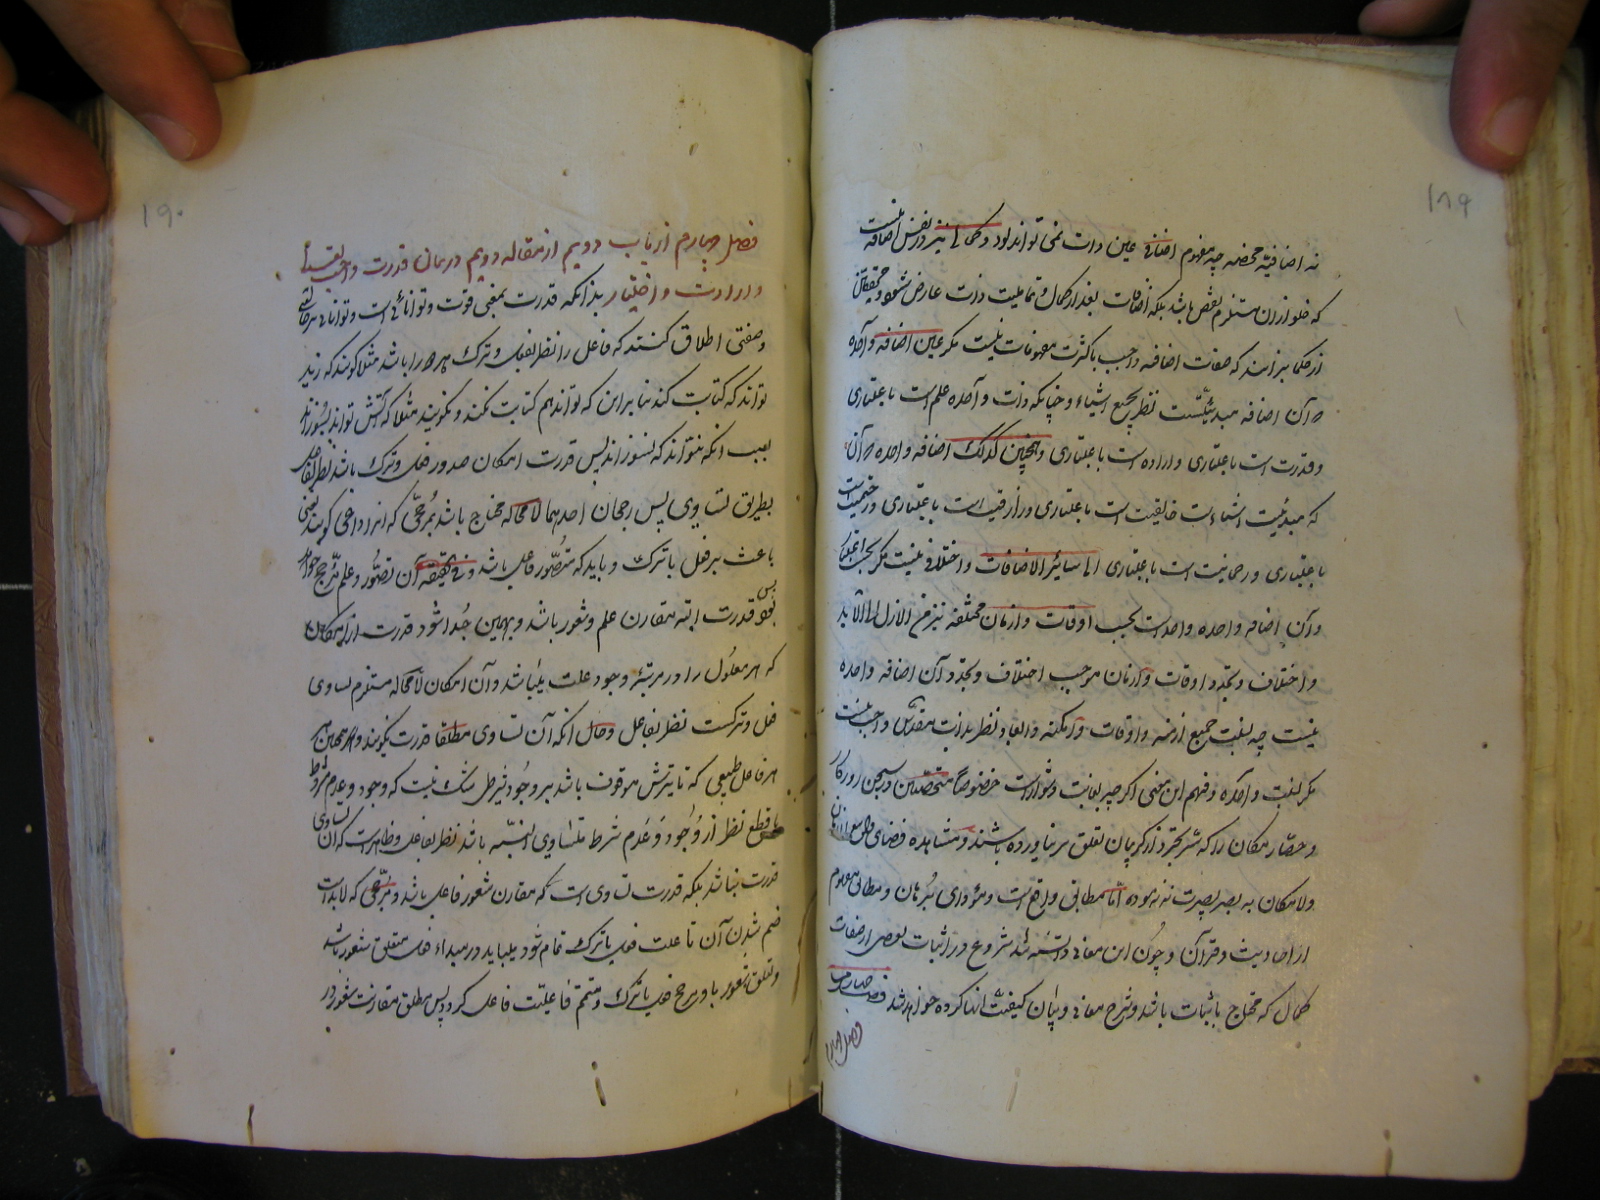 ۱۸۹
نه اضافیهٔ محضه چه مفهوم اضافه عین ذات نمی تواند بود و کمالی نیز در نفس اضافه نیست
که خلو از ان مستلزم نقص باشد بلکه اضافات بعد از کمال و تمامیت ذات عارض شود و محققان
از حکما برانند که صفات اضافیه واجب با کثرت مفهومات نیست مکر عین اضافه واحده
و آن اضافه مبدئیت است نظر بجمیع اشیاء و چنانکه ذات واحده علم است باعتباری
و قدرت است باعتباری و اراده است باعتباری و همچنین کذلک اضافه واحده و آن
که مبدئیت اشیاء است خالقیت است باعتباری و رازقیت است باعتباری و رحیمیت است
باعتباری و رحمانیت است باعتباری الی سائر الاضافات و اختلاف نیست مکر بحسب اعتبار
و آن اضافه واحده واحد است بحسب اوقات و ازمان مختلفه نیز من الازل الی الابد
و اختلاف و تجدد اوقات و ازمان موجب اختلاف و تجدد آن اضافه واحده
نیست چه نسبت جمیع ازمنه و اوقات و امکنه و ابعاد نظر بذات مقدس واجب نیست
مکر نسبت واحده و فهم این معنی اکر چه بغایت دشوار است خصوصاً متحصنین سجن روزکار
و حصار مکان را که سر تجرد از کریبان تعلق بر نیاورده باشند و مشاهده فضای واسع لازمان
ولامکان به بصر بصیرت ننموده اما مطابق واقع است و مؤدای برهان و مطابق مفهوم
از احادیث و قرآن و چون این معانی دانسته شد شروع در اثبات بعضی از صفات
کمال که محتاج باثبات باشد و شرح معانی و بیان کیفیت آنها کرده خواهد شد
فصل چهارم
۱۹۰
فصل چهارم از باب دویم از مقاله دویم در بیان قدرت واجب تعالی
و ارادت و اختیار بدانکه قدرت بمعنی قوت و توانائی است و توانائی در جائی
و صفتی اطلاق کنند که فاعل را نظر بفعل و ترک هر دو را باشد مثلا کویند که زید
تواند که کتابت کند بنا بر این که تواند هم کتابت نکند و نکویند مثلا که آتش تواند بسوزاند
بسبب آنکه نتواند که نسوزاند پس قدرت امکان صدور فعل و ترک باشد نظر بفاعل
بطریق تساوی پس رجحان احدهما لامحاله محتاج باشد بمرجحی که انرا داعی کویند یعنی
باعث بر فعل یا ترک و باید که متصور فاعل باشد و فی الحقیقه آن تصور و علم مرجح خواهد
بود پس قدرت البته مقارن علم و شعور باشد و بهمین جدا شود قدرت از امکان
که هر معلول را در مرتبهٔ وجود علت میباشد و آن امکان لامحاله مستلزم تساوی
فعل و ترکست نظر بفاعل و حال آنکه آن تساوی مطلقا قدرت نکویند و همچنین
هر فاعل طبیعی که تاثیرش موقوف باشد بر وجود شرطی شک نیست که وجود و عدم مشروط
با قطع نظر از وجود و عدم شرط متساوی النسبه باشد نظر بفاعل و ظاهر است که آن تساوی
قدرت نباشد بلکه قدرت تساوی است که مقارن شعور فاعل باشد و مرجحی که لابد است
ضم شدن آن تا علت فعل یا ترک تمام شود میباید در مبداء فعل متعلق شعور باشد
و تعلق شعور باو مرجح فعل یا ترک و متمم فاعلیت فاعل کردد پس مطلق مقارنت شعور در